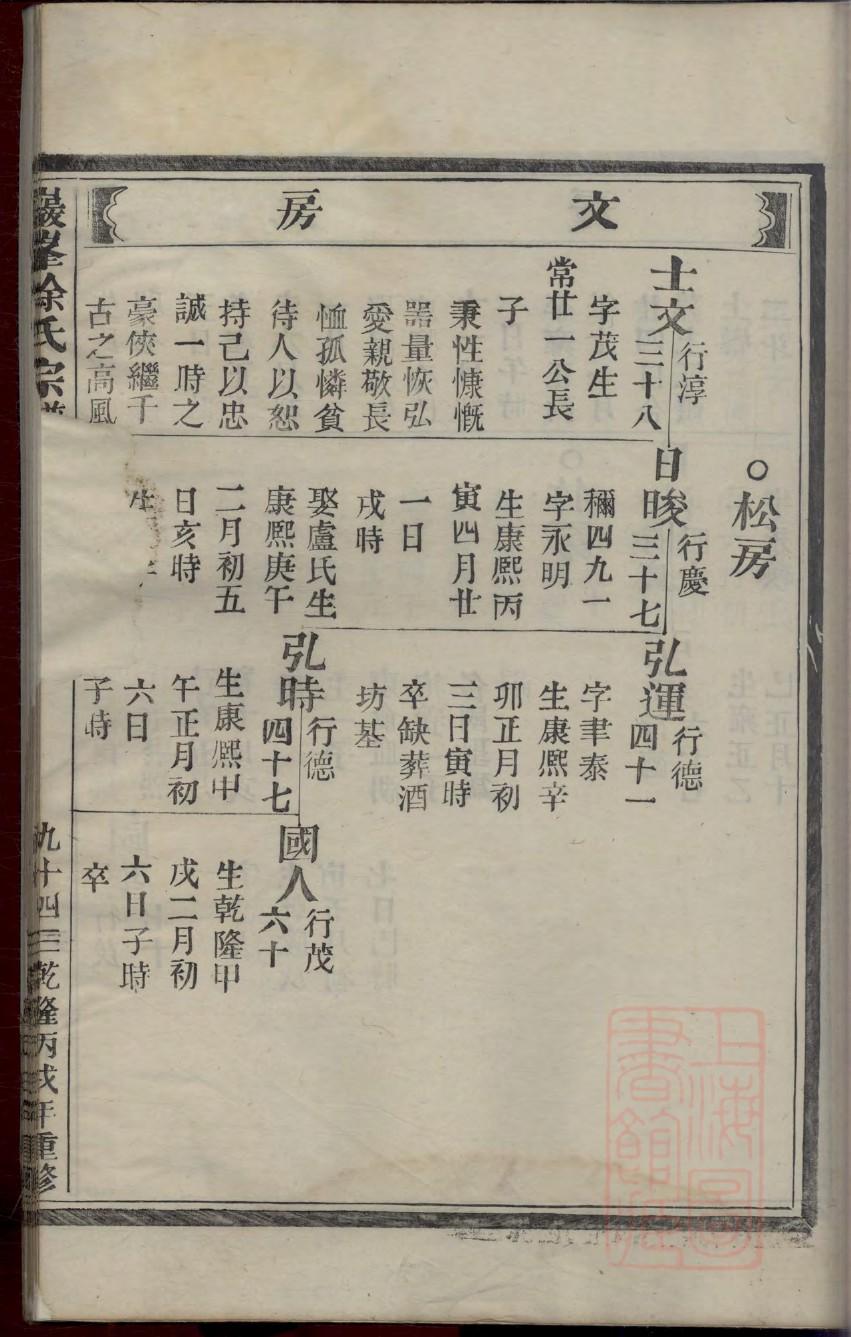 文房
松房
士文
行淳
三十八
字茂生
常廿一公長
子
秉性慷慨
器量恢弘
愛親敬長
恤孤憐貧
待人以恕
持己以忠
誠一時之
豪俠繼千
古之高風
日晙
行慶
三十七
禰四九一
字永明
生康熙丙
寅四月廿
一日
戌時
娶盧氏生
康熙庚午
二月初五
日亥時
生
弘運
行德
四十一
字聿泰
生康熙辛
卯正月初
三日寅時
卒缺葬酒
坊基
弘時
行德
四十七
生康熙甲
午正月初
六日
子時
國人
行茂
六十
生乾隆甲
戌二月初
六日子時
卒
巖峯徐氏宗譜
九十四
乾隆丙戌年重修
上海圖書館藏